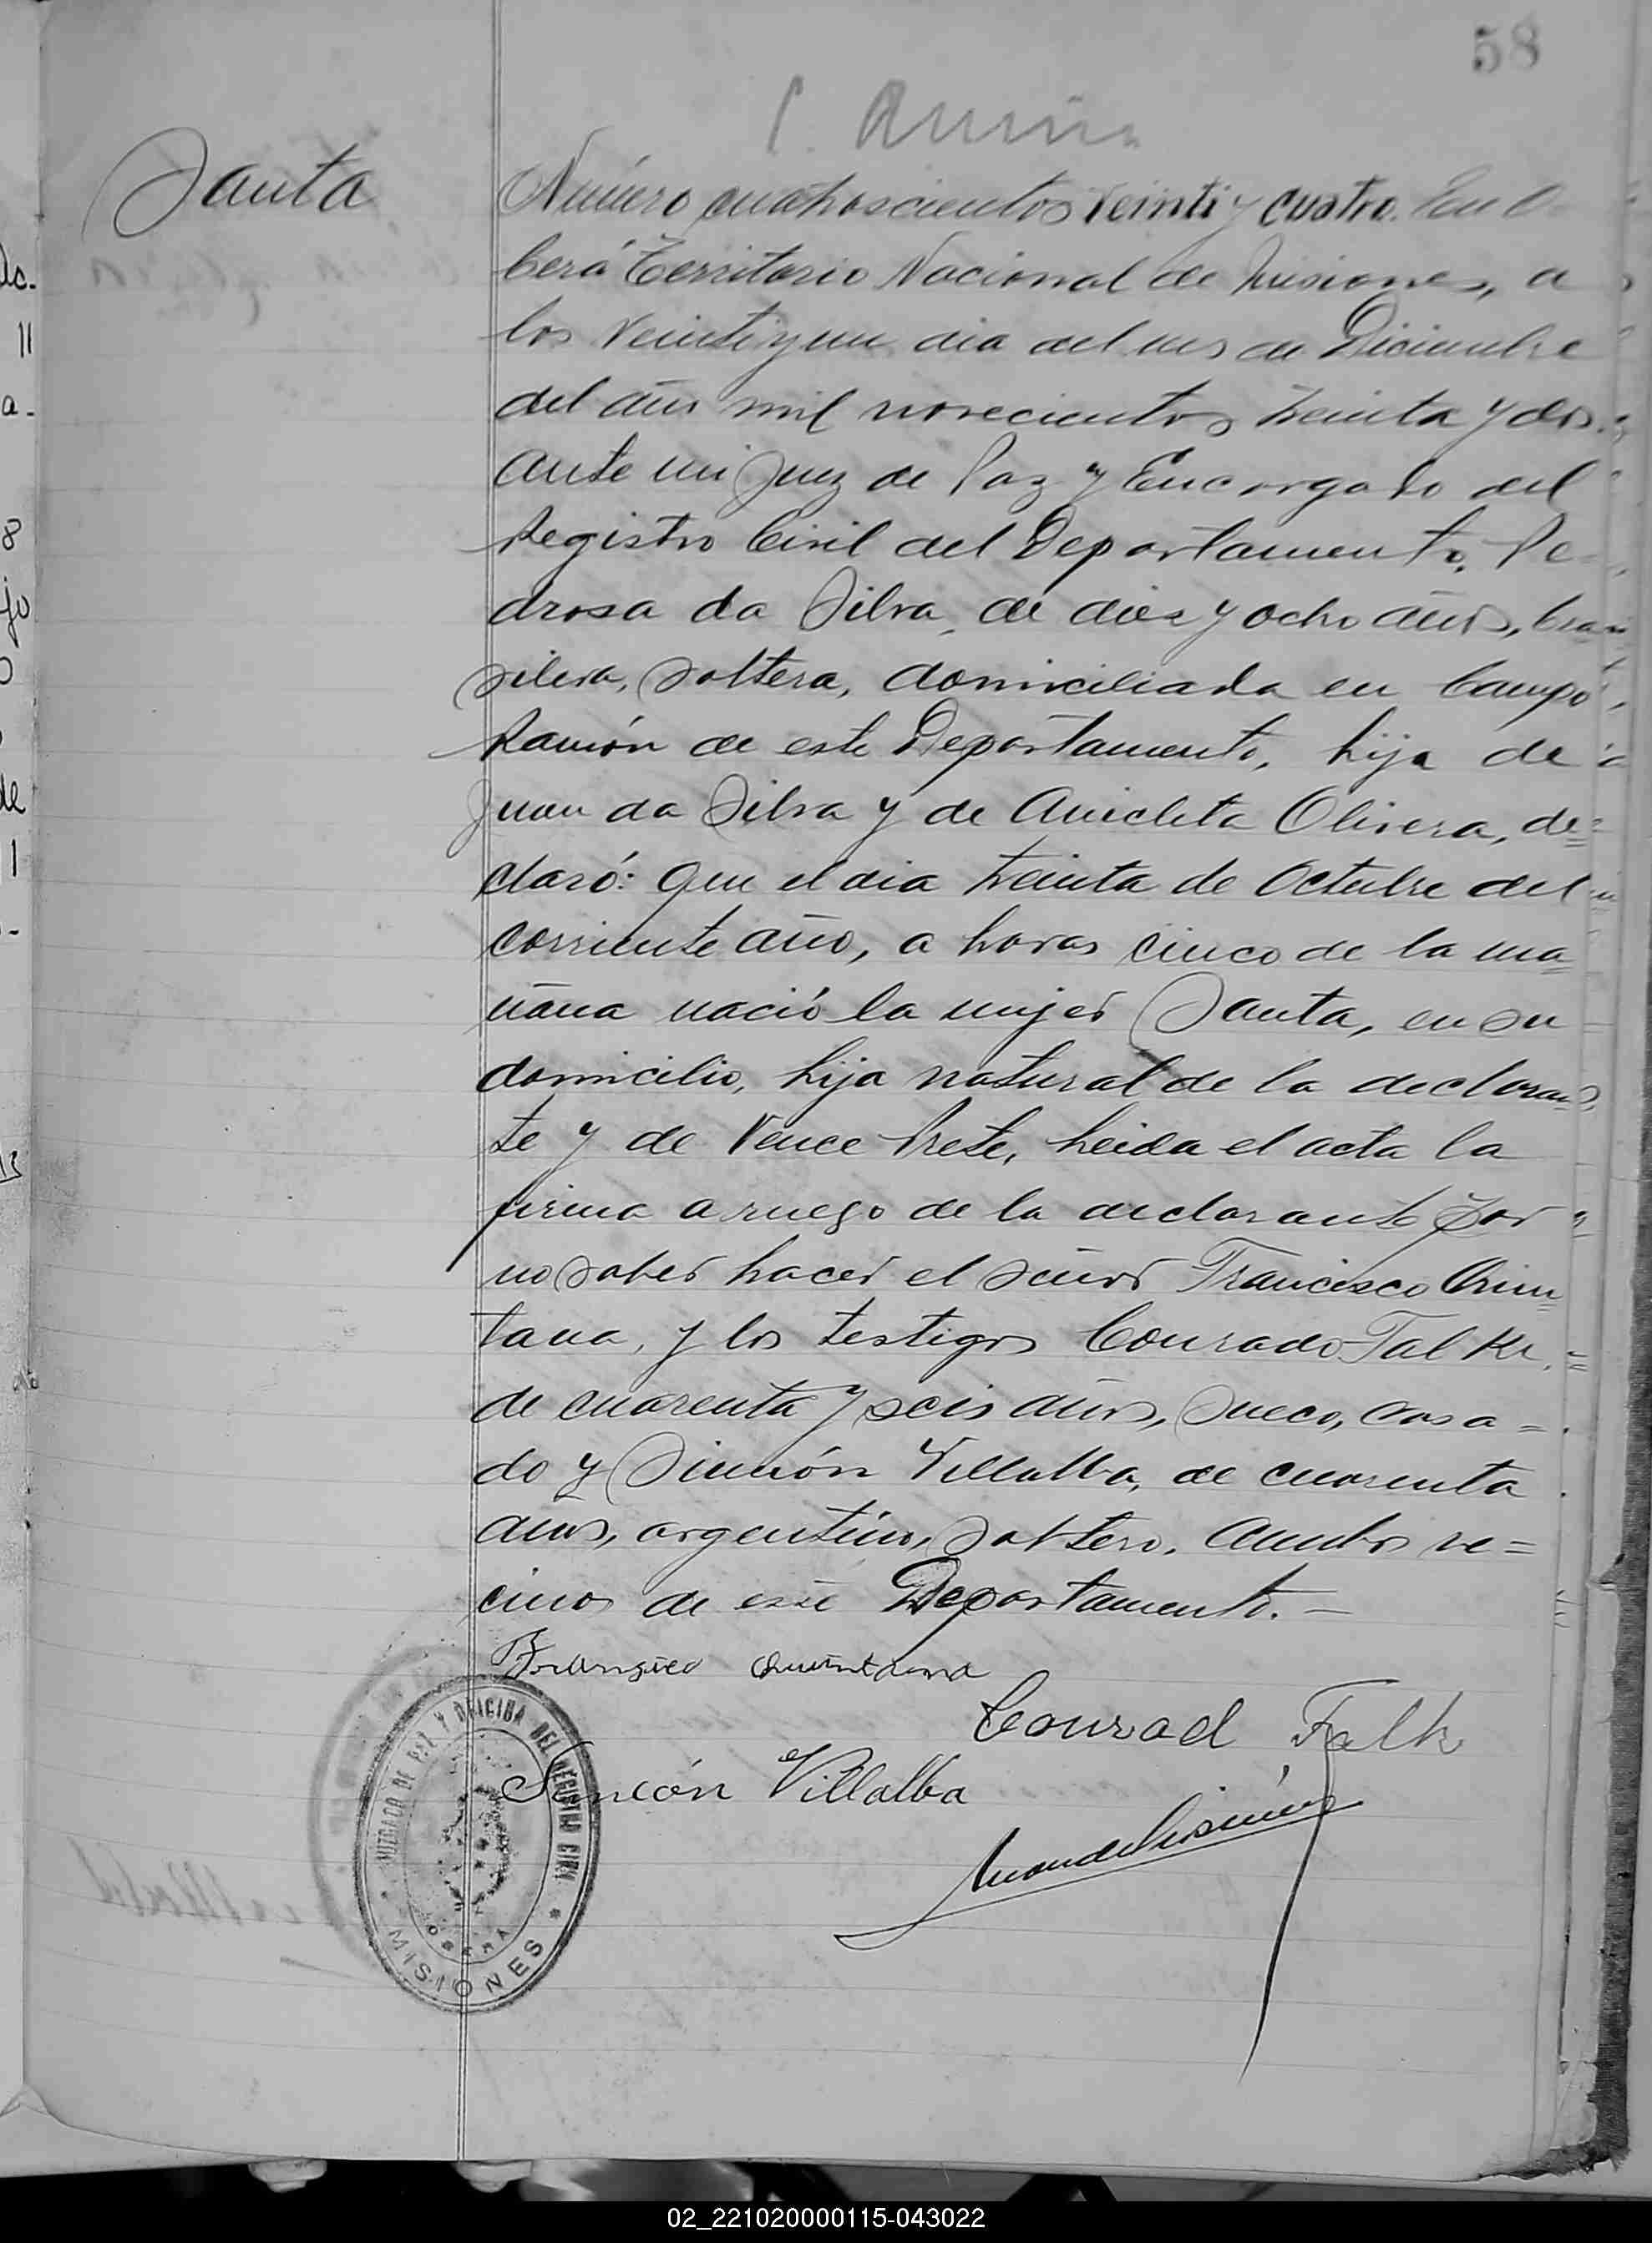 58
C. Ramón
Santa
Número cuatroscientos veinti y cuatro. En O
berá Territorio Nacional de Misiones, a
los veintiyun dia del mes de Diciembre
del año mil novecientos treinta y dos.
ante mi Juez de Paz y Encargado del
Registro Civil del Departamento, Pe-
drosa da Silva, de diez y ocho años, bra
silera, soltera, domiciliada en Campo
Ramón de este Departamento, hija de
Juan da Silva y de Anicleta Olivera, de=
claró: que el dia treinta de Octubre del
corriente año, a horas cinco de la ma=
ñana nació la mujer Santa, en su
domicilio, hija natural de la declaran
te y de Vence Prete, Leida el acta la
firma a ruego de la declarante por
no saber hacer el señor Francisco Quin=
tana, y los testigos Conrado Talk
de cuarenta y seis años, sueco, casa=
do y Simón Villalba, de cuarenta
años, argentino, soltero. Ambos ve=
cinos de este Departamento. —
Fransico Quintana
Conrad Falk
Simeón Villalba
JUZGADO DE PAZ Y OFICINA DEL REGISTRO CIVIL
OBERA
* MISIONES *
Dc.
11
a-
8
jo
de
1
13
02_221020000115-043022